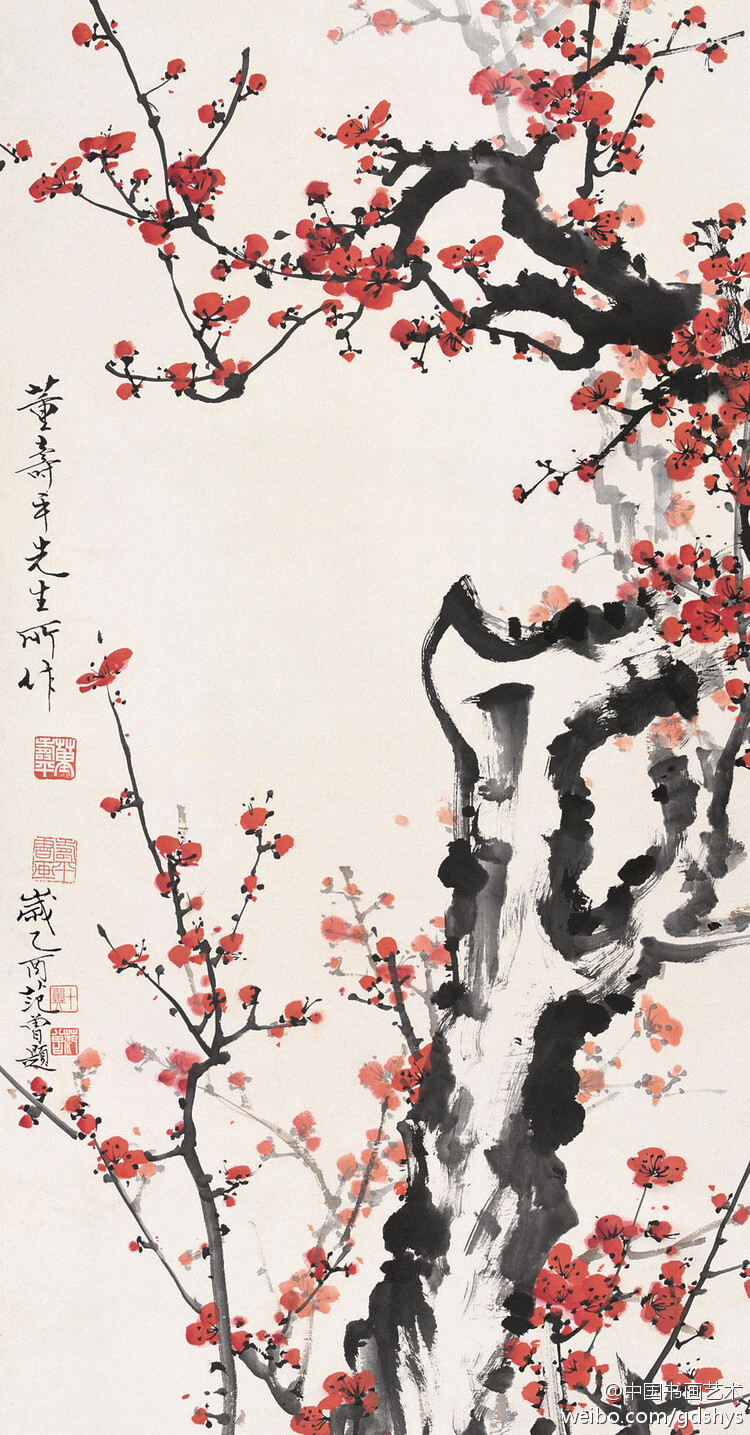 董壽平先生所作
歲乙酉范曾題
@中国书画艺术
weibo.com/gdshys